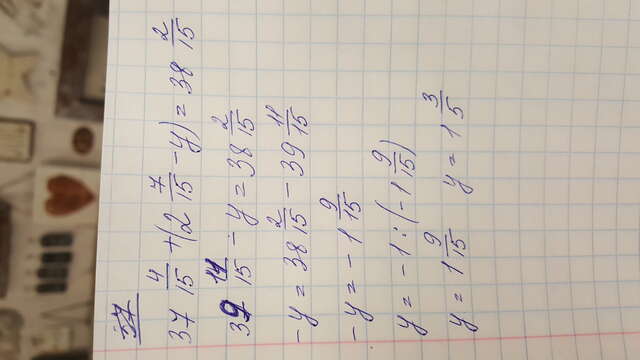 37
37 4/15 + (2 7/15 - y) = 38 2/15
39 11/15 - y = 38 2/15
-y = 38 2/15 - 39 11/15
-y = -1 9/15
y = -1 : (-1 9/15)
y = 1 9/15 y = 1 3/5